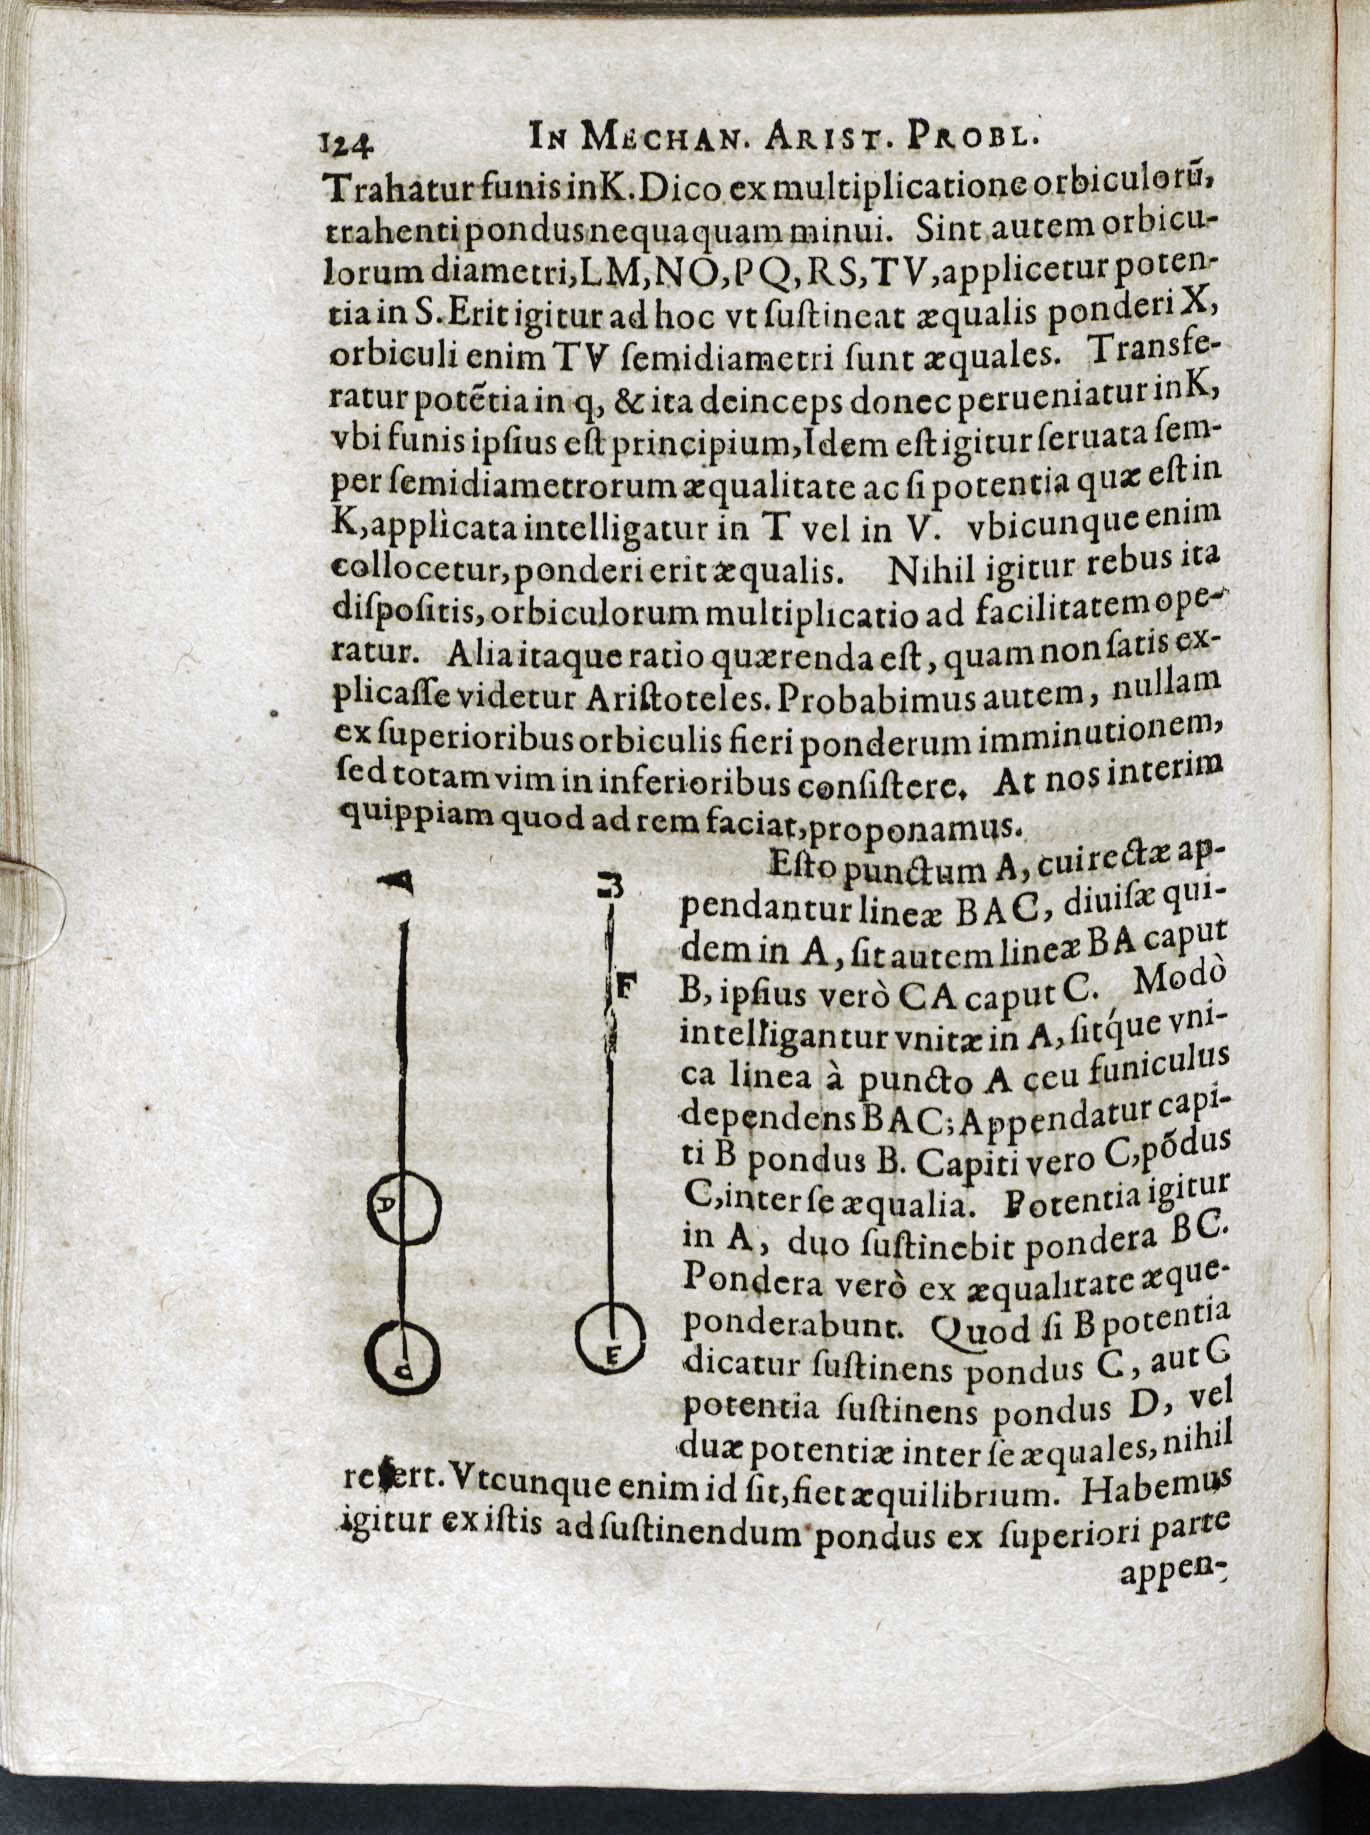 124 IN MECHAN. ARIST. PROBL.
Trahatur funis in K. Dico ex multiplicatione orbiculorũ,
trahenti pondus nequaquam minui. Sint autem orbicu-
lorum diametri, LM, NO, PQ, RS, TV, applicetur poten-
tia in S. Erit igitur ad hoc vt ſuſtineat æqualis ponderi X,
orbiculi enim TV ſemidiametri ſunt æquales. Transfe-
ratur potẽtia in q, & ita deinceps donec perueniatur in K,
vbi funis ipſius eſt principium, Idem eſt igitur ſeruata ſem-
per ſemidiametrorum æqualitate ac ſi potentia quæ eſt in
K, applicata intelligatur in T vel in V. vbicunque enim
collocetur, ponderi erit æqualis. Nihil igitur rebus ita
diſpoſitis, orbiculorum multiplicatio ad facilitatem ope-
ratur. Alia itaque ratio quærenda eſt, quam non ſatis ex-
plicaſſe videtur Ariſtoteles. Probabimus autem, nullam
ex ſuperioribus orbiculis fieri ponderum imminutionem,
ſed totam vim in inferioribus conſiſtere. At nos interim
quippiam quod ad rem faciat, proponamus.
Eſto punctum A, cui rectæ ap-
pendantur lineæ BAC, diuiſæ qui-
dem in A, ſit autem lineæ BA caput
B, ipſius verò CA caput C. Modò
intelligantur vnitæ in A, ſitq́ue vni-
ca linea à puncto A ceu funiculus
dependens BAC; Appendatur capi-
ti B pondus B. Capiti vero C, põdus
C, inter ſe æqualia. Potentia igitur
in A, duo ſuſtinebit pondera BC.
Pondera verò ex æqualitate æque-
ponderabunt. Quod ſi B potentia
dicatur ſuſtinens pondus C, aut C
potentia ſuſtinens pondus D, vel
duæ potentiæ inter ſe æquales, nihil
refert. Vtcunque enim id ſit, fiet æquilibrium. Habemus
igitur ex iſtis ad ſuſtinendum pondus ex ſuperiori parte
appen-
A
B
F
A
C
E